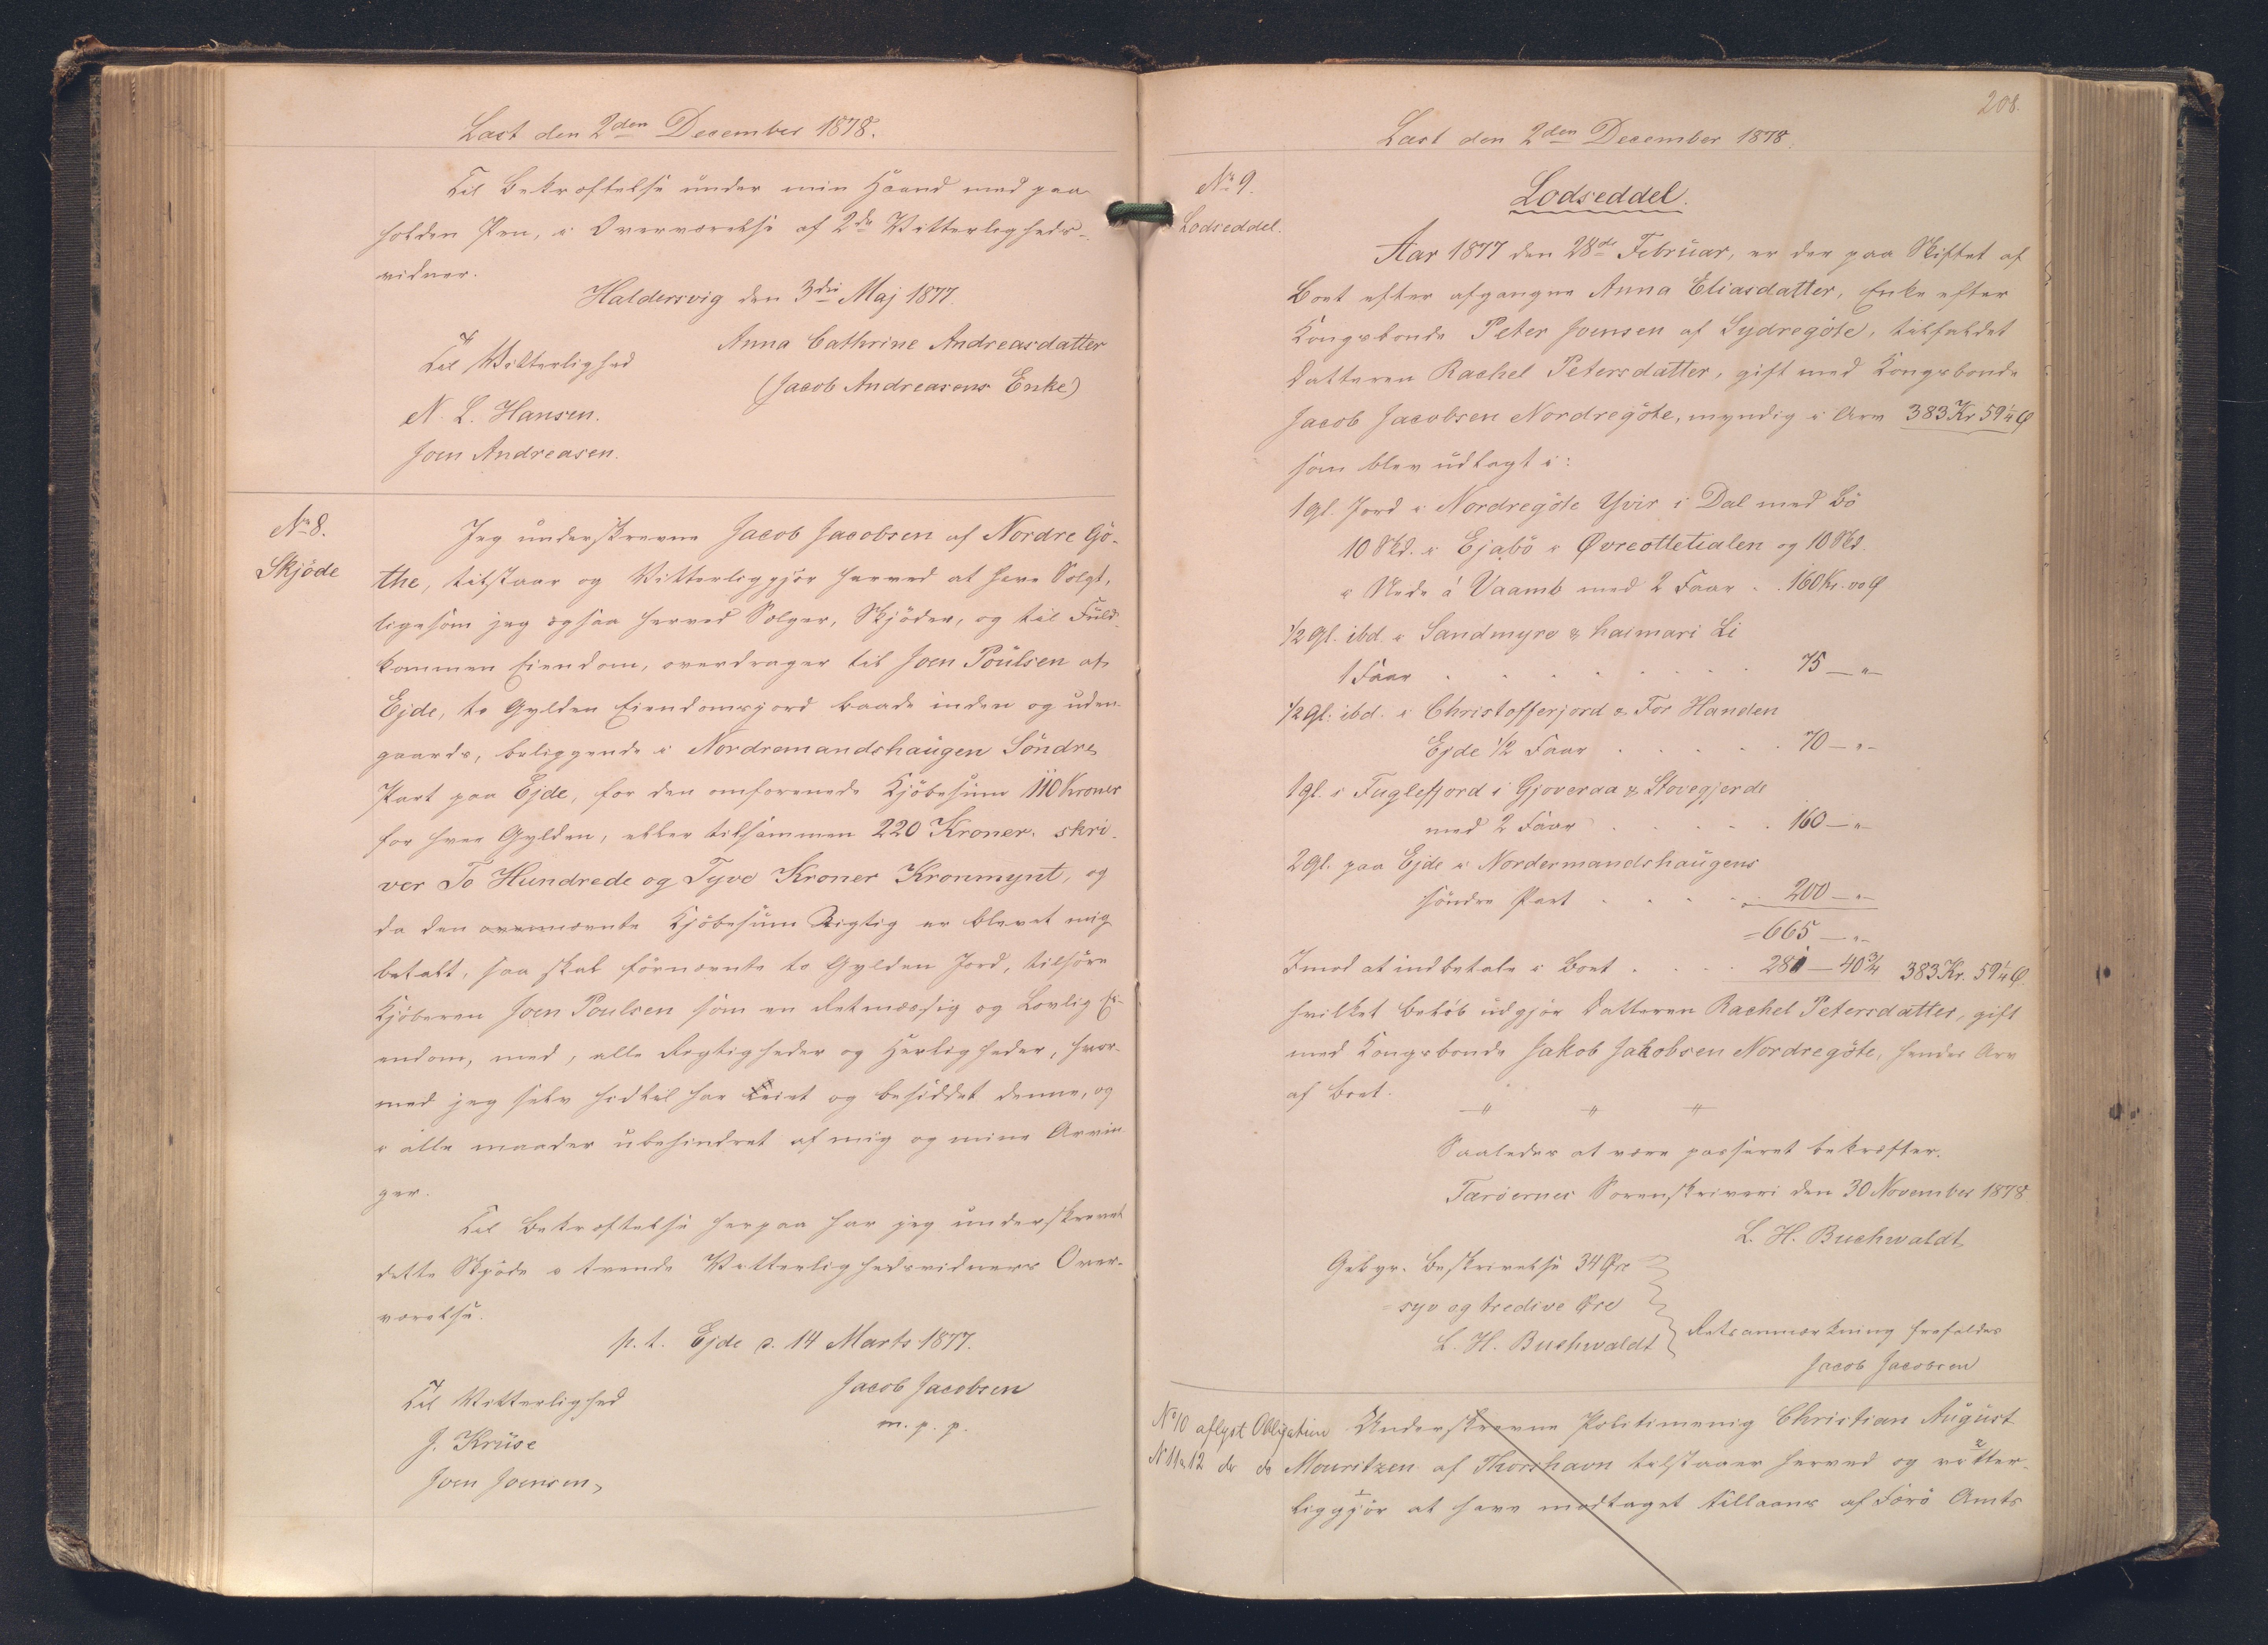 Læst den 2den December 1878.
Til Bekræftelse under min Haand med paa-
holden Pen, i Overværelse af 2de Vitterligheds-
vidner.
Haldersvig den 3die Maj 1877.
Anna Cathrine Andreasdatter
Til Vitterlighed
(Jacob Andreasens Enke)
N. L. Hansen.
Joen Andreasen.
No 8.
Skjöde
Jeg underskrevne Jacob Jacobsen af Nordre Gö-
the, tilstaar og Vitterliggjör herved at have Solgt,
ligesom jeg ogsaa herved Sælger, Skjöder, og til Fuld-
kommen Eiendom, overdrager til Joen Poulsen af
Ejde, to Gylden Eiendomsjord baade inden og uden-
gaards, beliggende i Nordremandshaugen Söndre
Part paa Ejde, for den omforenede Kjöbesum 110 Kroner
for hver Gylden, eller tilsammen 220 Kroner. skri-
ver To Hundrede og Tyve Kroner Kronmynt, og
da den ovennævnte Kjöbesum Rigtig er blevet mig
betalt, saa skal fornævnte to Gylden Jord, tilhöre
Kjöberen Joen Poulsen som en Retmæssig og Lovlig Ei-
endom, med, alle Rettigheder og Herligheder, hvor-
med jeg selv hidtil har Eiet og besiddet denne, og
i alle maader ubehindret af mig og mine Arvin
ger.
Til Bekræftelse herpaa har jeg underskrevet
dette Skjöde i tvende Vitterlighedsvidners Over-
værelse.
p. t. Ejde d. 14 Marts 1877.
Til Vitterlighed
Jacob Jacobsen
m. p. p.
J. Krüse
Joen Joensen,
208.
Læst den 2den December 1878.
No 9.
Lodseddel.
Lodseddel.
Aar 1877 den 28de Februar, er der paa Skiftet af
Boet efter afgangne Anna Eliasdatter, Enke efter
Kongsbonde Peter Joensen af Sydregöte, tilfaldet
Datteren Rachel Petersdatter, gift med Kongsbonde
Jacob Jacobsen Nordregöte, myndig i Arv 383 Kr 59 1/4 Ø
som blev udlagt i:
1 gl. Jord i Nordregöte Yvir i Dal med Bö
10 Skd. i Ejabö i Øvreottetialen og 10 Skd.
i Nede á Vaamb med 2 Faar . 160 Kr. 00 Ø
1/2 gl. ibd. i Sandmyre & haimari Li
1 Faar . . . . . . . 75 — " —
1/2 gl. ibd. i Christofferjord & For Handen
Ejde 1/2 Faar . . . . . 70 — " —
1 gl. i Fuglefjord i Gjoveraa & Stovegjerde
med 2 Faar . . . . . 160 — " —
2 gl. paa Ejde i Nordermandshaugens
söndre Part . . . . . 200 — " —
= 665 — " —
Imod at indbetale i Boet . . . . 281 — 40 3/4 383 Kr. 59 1/4 Ø.
hvilket beløb udgjör Datteren Rachel Petersdatter, gift
med Kongsbonde Jakob Jakobsen Nordregöte, hendes Arv
af Boet.
Saaledes at være passeret bekræfter.
Færöernes Sorenskriveri den 30 November 1878.
L. H. Buchwaldt
Gebyr. Beskrivelse 34 Øre
= syv og tredive Øre
L. H. Buchwaldt
Retsanmærkning frafaldes
Jacob Jacobsen
No 10 aflyst Obligation
N 11 & 12 do do
Underskrevne Politimenig Christian August
Mouritzen af Thorshavn tilstaaer herved og vitter-
liggjör at have modtaget tillaans af Færö Amts